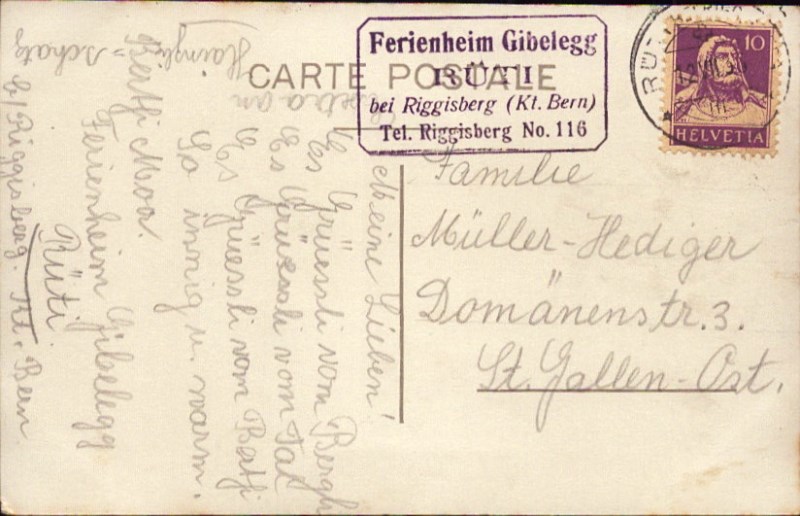 CARTE POSTALE
Ferienheim Gibelegg
RÜTI
bei Riggisberg (Kt. Bern)
Tel. Riggisberg No. 116
10
HELVETIA
RÜTI
Familie
Müller-Hediger
Domänenstr. 3.
St. Gallen-Ost.
Meine Lieben!
Es Grüessli vom Bergli
Es Grüessli vom Tal
Es Grüessli vom Bertfi
So innig u. warm.
Bertfi Moa.
Ferienheim Gibelegg
Rüti
b/Riggisberg. Kt. Bern
schatz